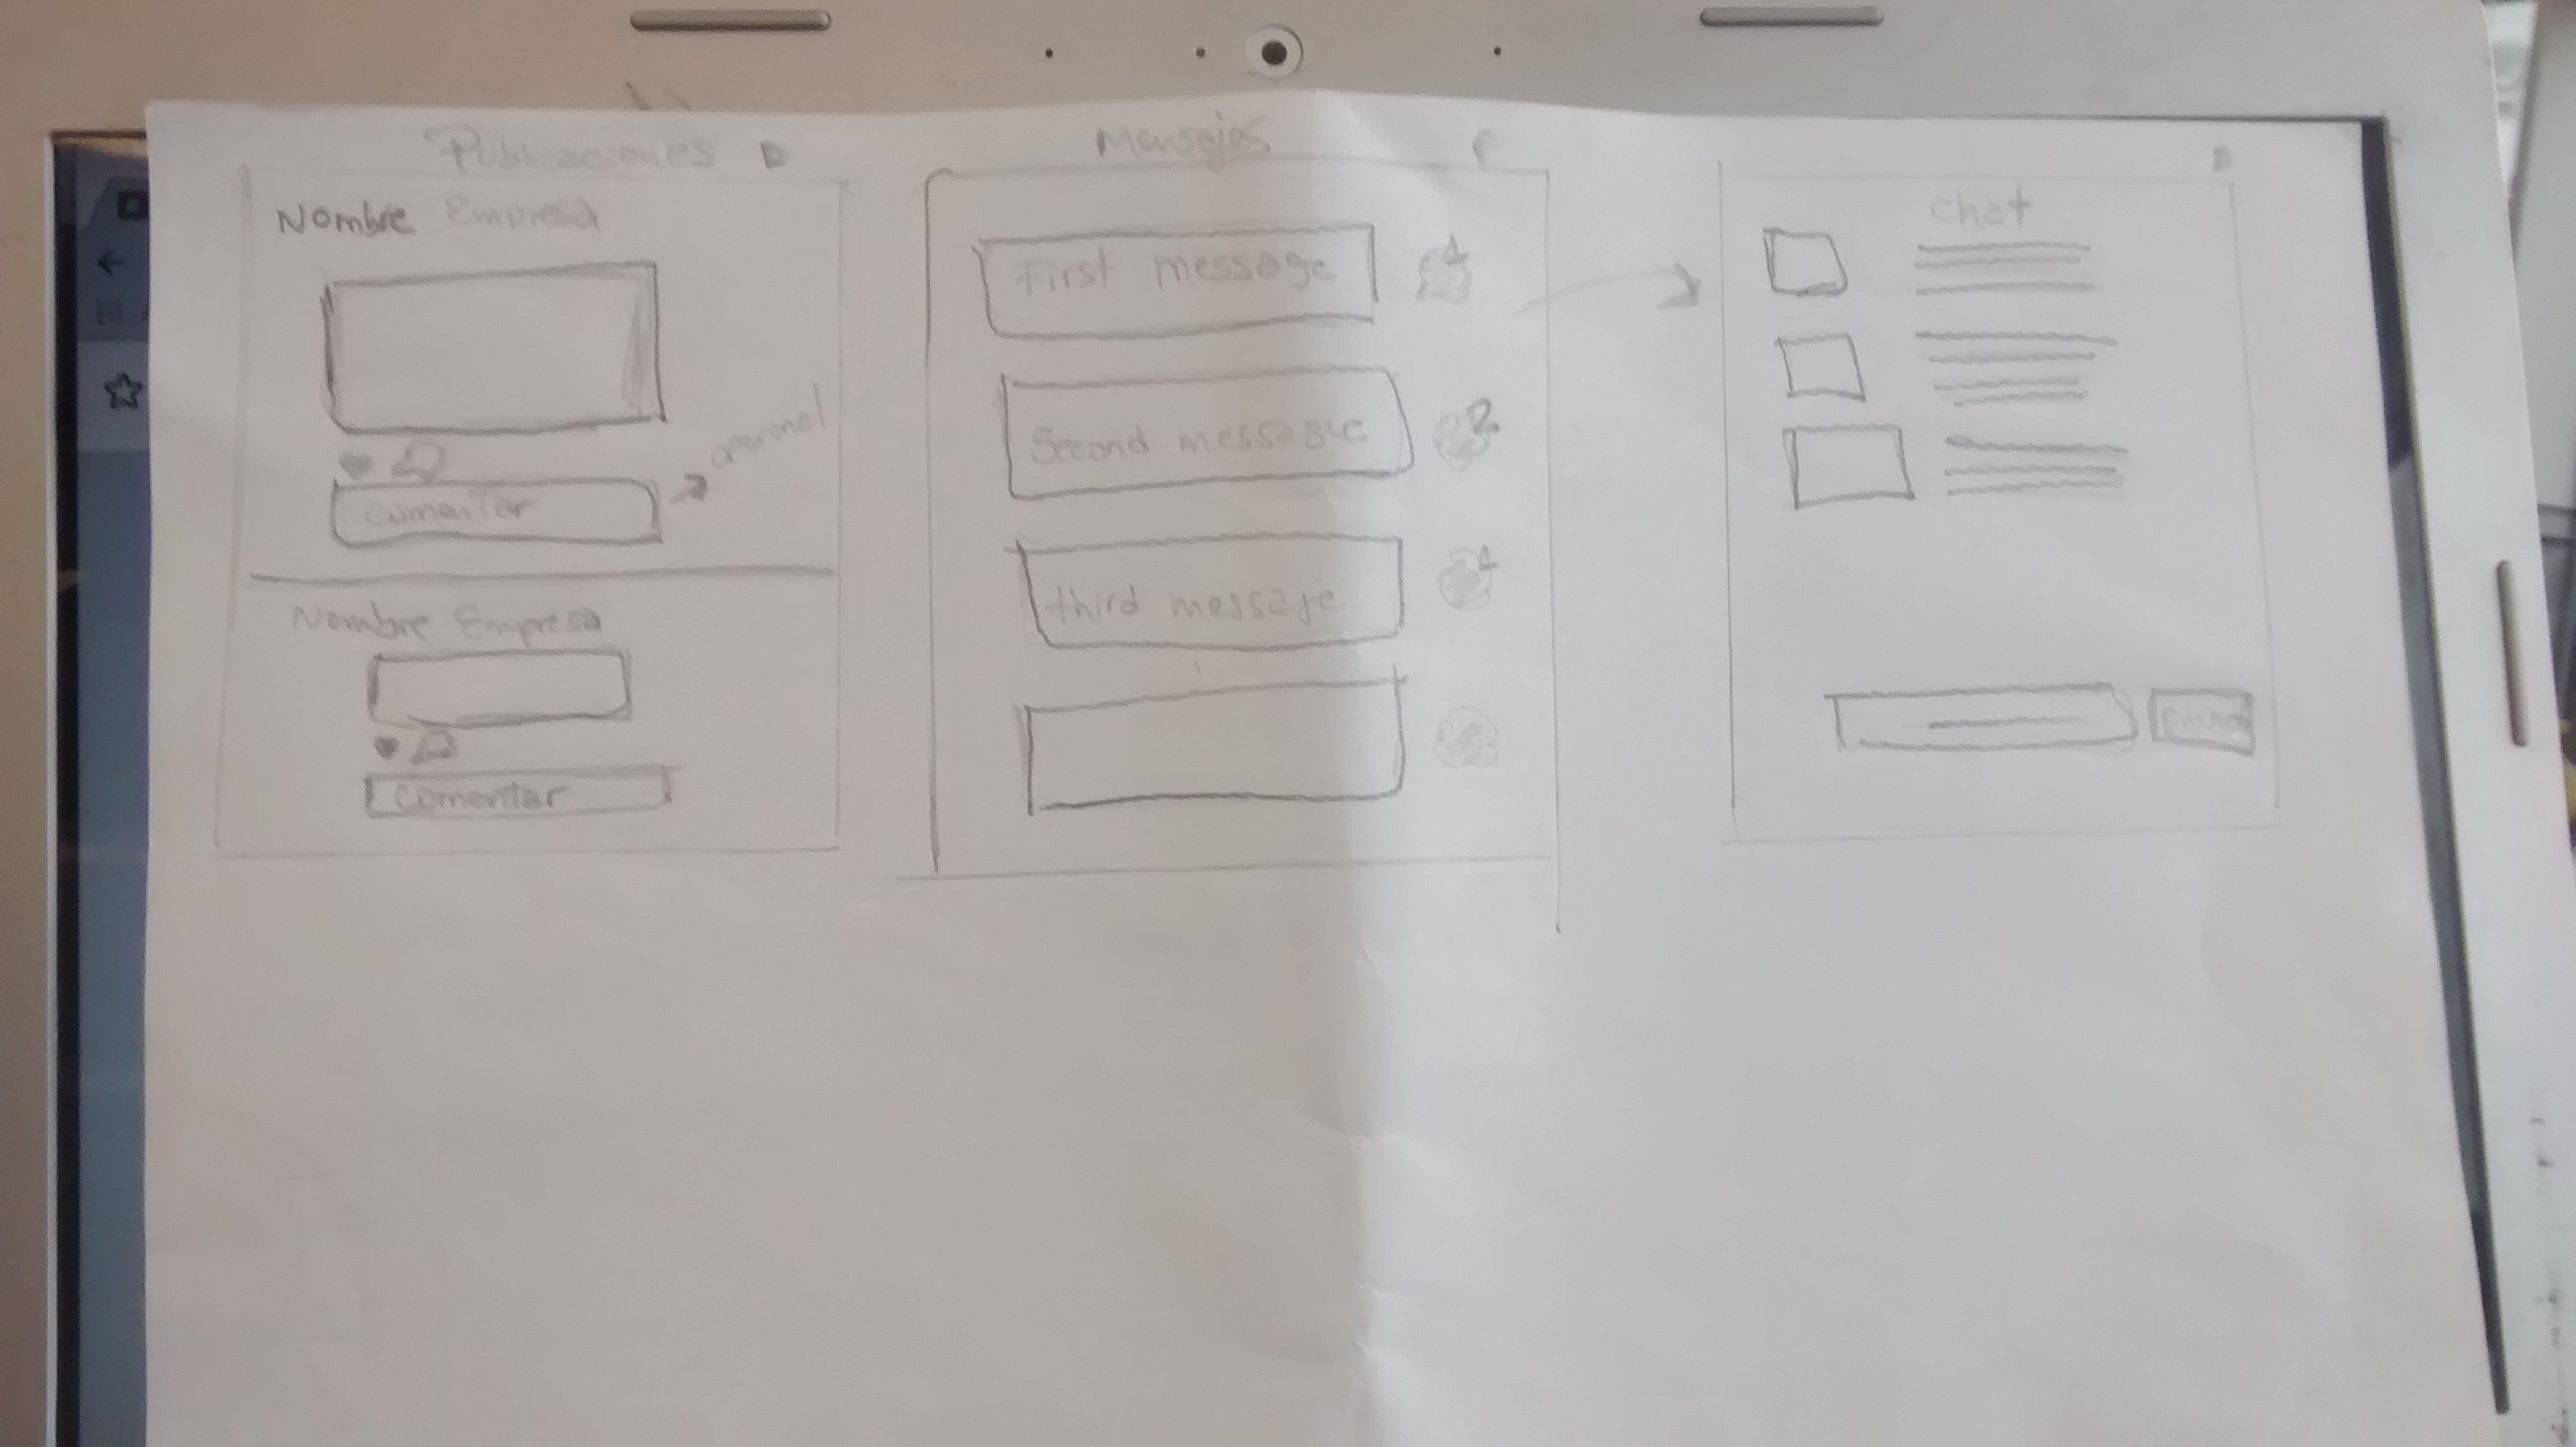 Publicaciones D
Nombre Empresa
opcional
comentar
Nombre Empresa
comentar
Mensajes
First message
1
Second message
2
third message
1
chat